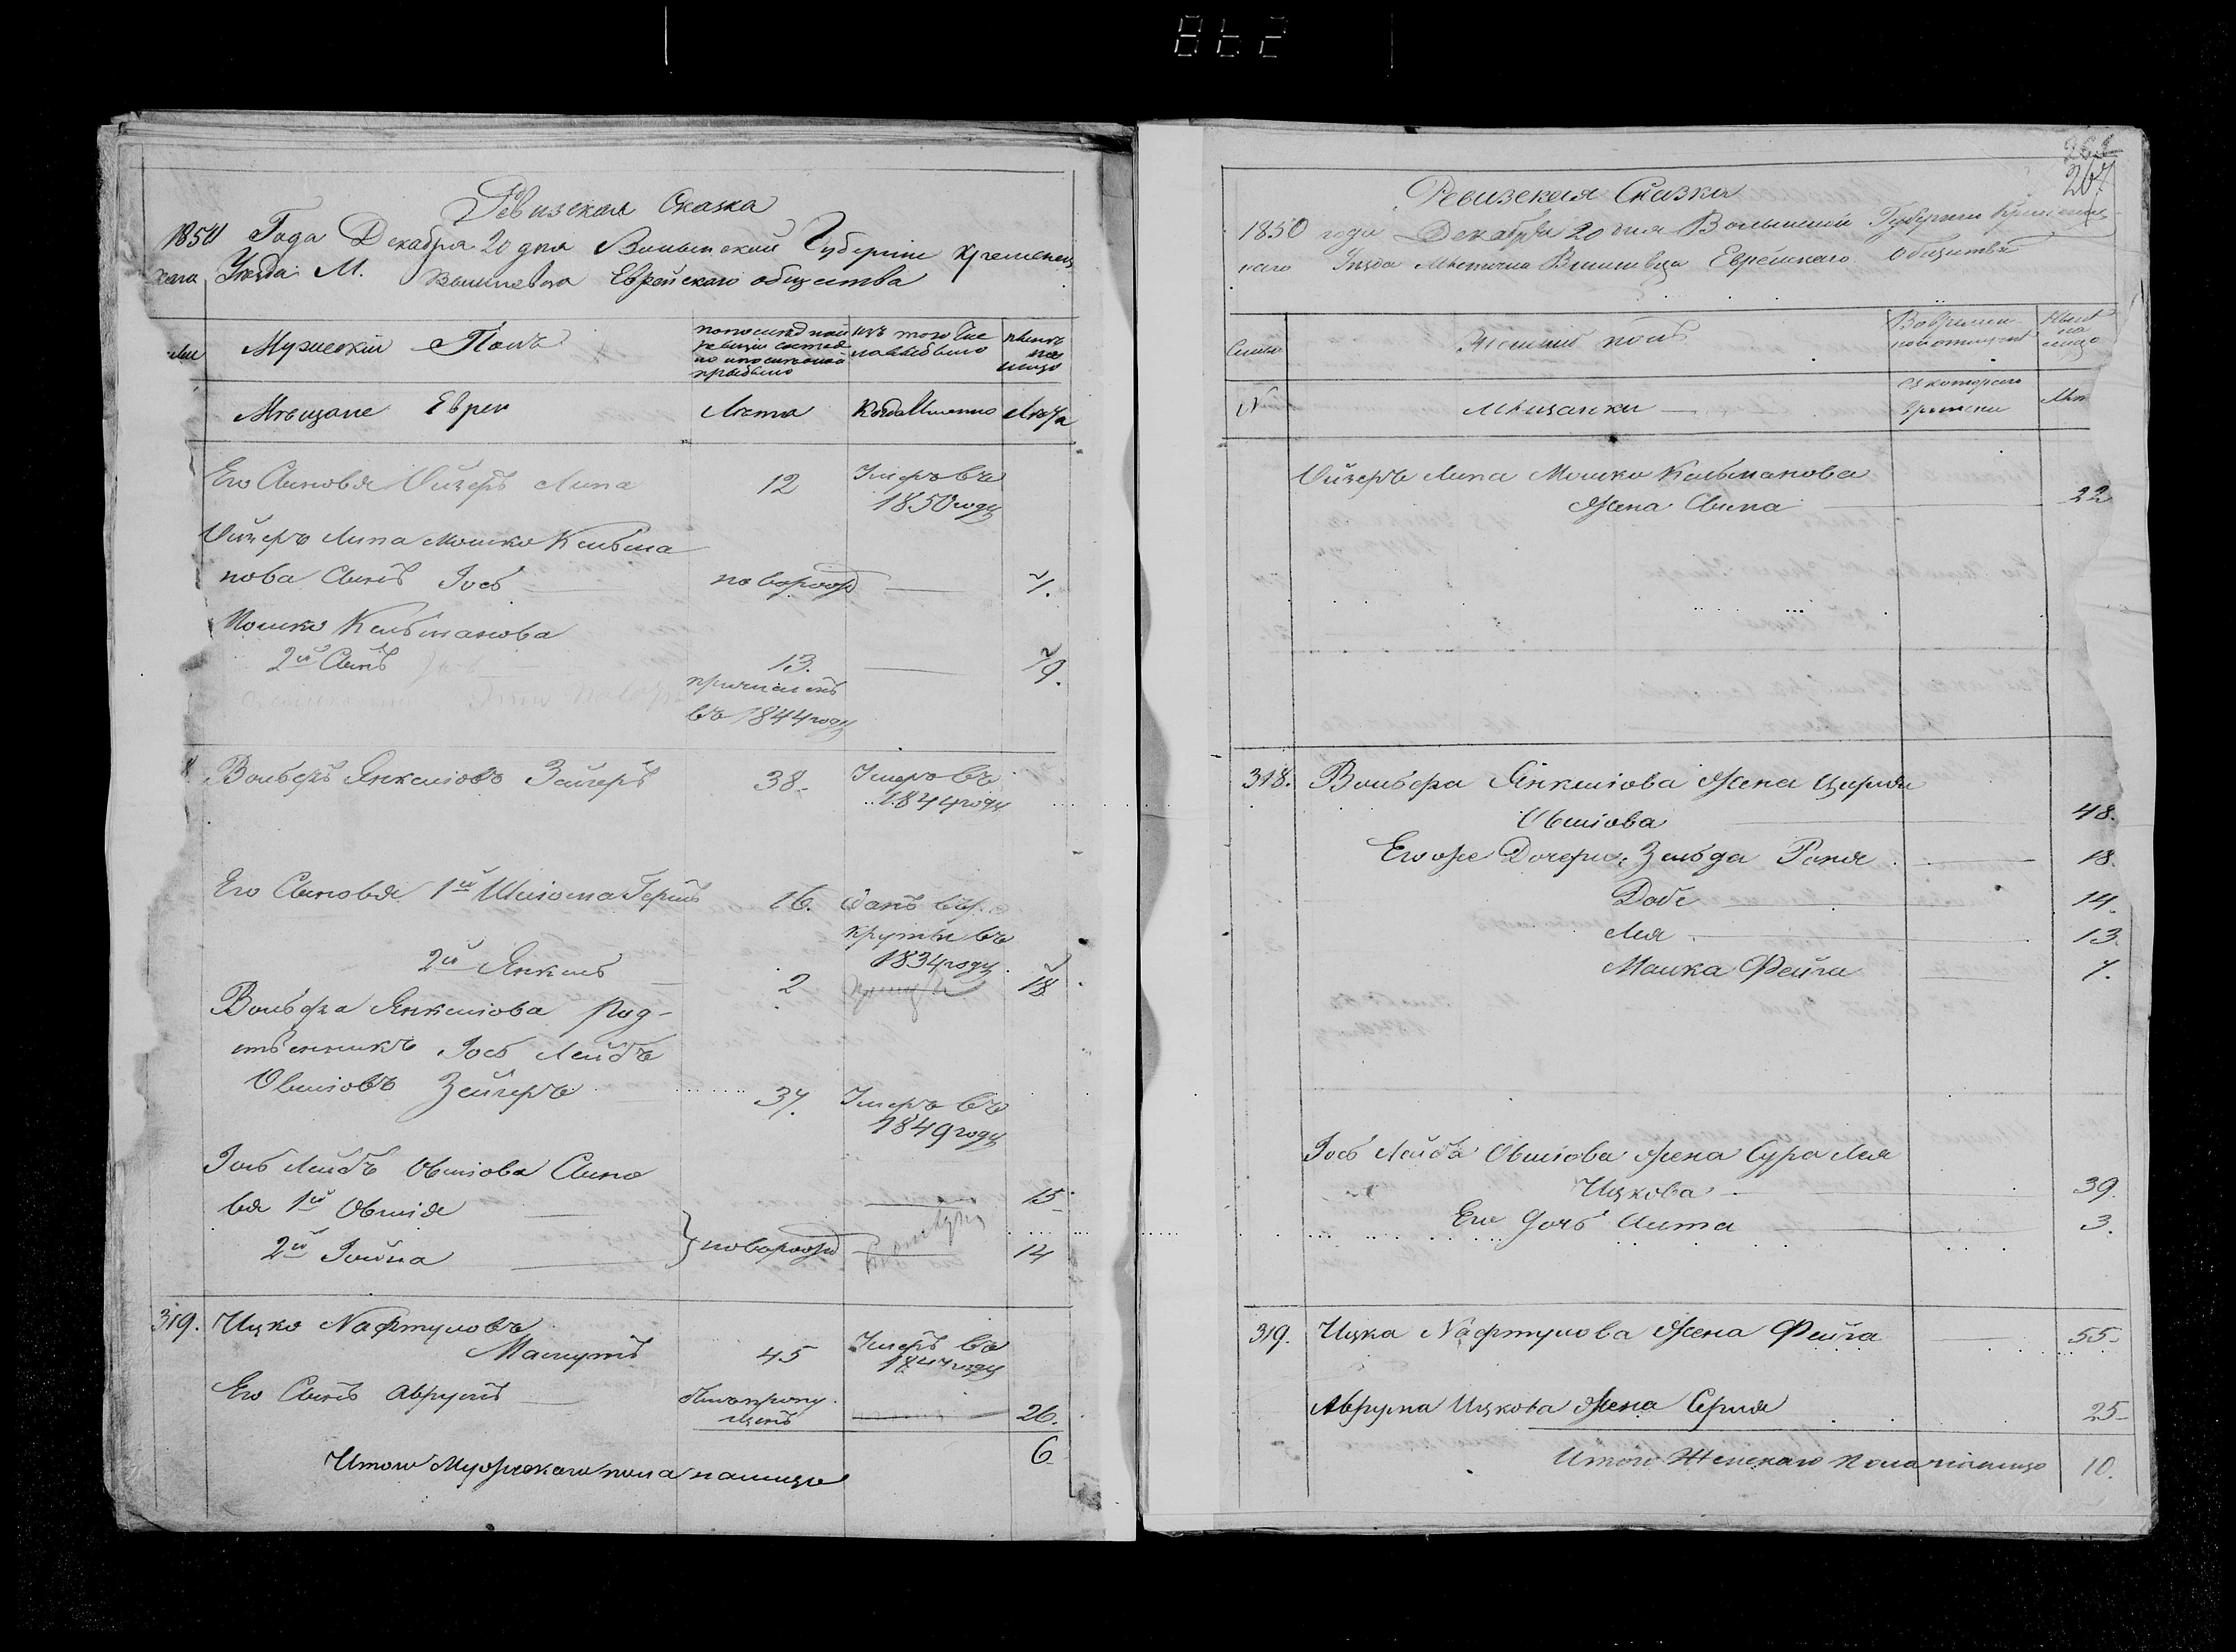 862
Ревизская Сказка
1850 Года Декабря 20 дня Волынской Губернии Кременец
каго Уезда М. Вишневца Еврейскаго общества
Мужескій Полъ
по последней
ревизіи состоя
ло и после оной
прибыло
изъ того числа
выбыло
ныне
на
лицо
Мещане Евреи
Лета
Когда Именно
Лета
Его Сыновья Ойзеръ Липа 12 Умеръ въ
1850 году
Ойзеръ Липа Мошко Кельма
нова Сынъ Іосъ новорожд 7.
Мошко Кельманова
2й Сынъ 13. 19.
причисленъ
въ 1844 году
Вольфъ Янкеліовъ Зейгеръ 38. Умеръ въ
1844 году
Его Сыновья 1й Шліома Гершъ 16. Сданъ въ ре
круты въ
1834 году
2й Янкель 2 18
Вольфа Янкеліова род-
ственникъ Іосъ Лейбъ
Овшіовъ Зейгеръ 37. Умеръ въ
1849 году
Іосъ Лейбъ Овшіова Сыно
вя 1й Овшія 15.
2й Іойна } новорожд 14
319. Ицко Нафтуловъ
45 Умеръ въ
1847 году
Его Сынъ Аврумъ былъ пропу
щенъ 26.
Итого Мужескаго пола налицо 6
267
Ревизская Сказка
1850 года Декабря 20 дня Волынской Губерніи Кременец-
каго Уезда Местечка Вишневца Еврейскаго Общества
Семьи
Женскій полъ
Во времен-
ной отлучке
Ныне
на
лицо
№
Мещанки
съ котораго
времени
Лета
Ойзеръ Липа Мошко Кельманова
Жена Сыма 22
318. Вольфа Янкеліова Жена Цирля
Овшіова 48.
Его же Дочери, Зельда Рания 18.
Добе 14.
Лея 13.
Малка Фейга 7.
Іосъ Лейба Овшіова Жена Сура Лея
Ицкова 39.
Его Дочь Лита 3.
319. Ицка Нафтулова Жена Фейга 55.
Аврума Ицкова Жена Серля 25
Итого Женскаго пола налицо 10.